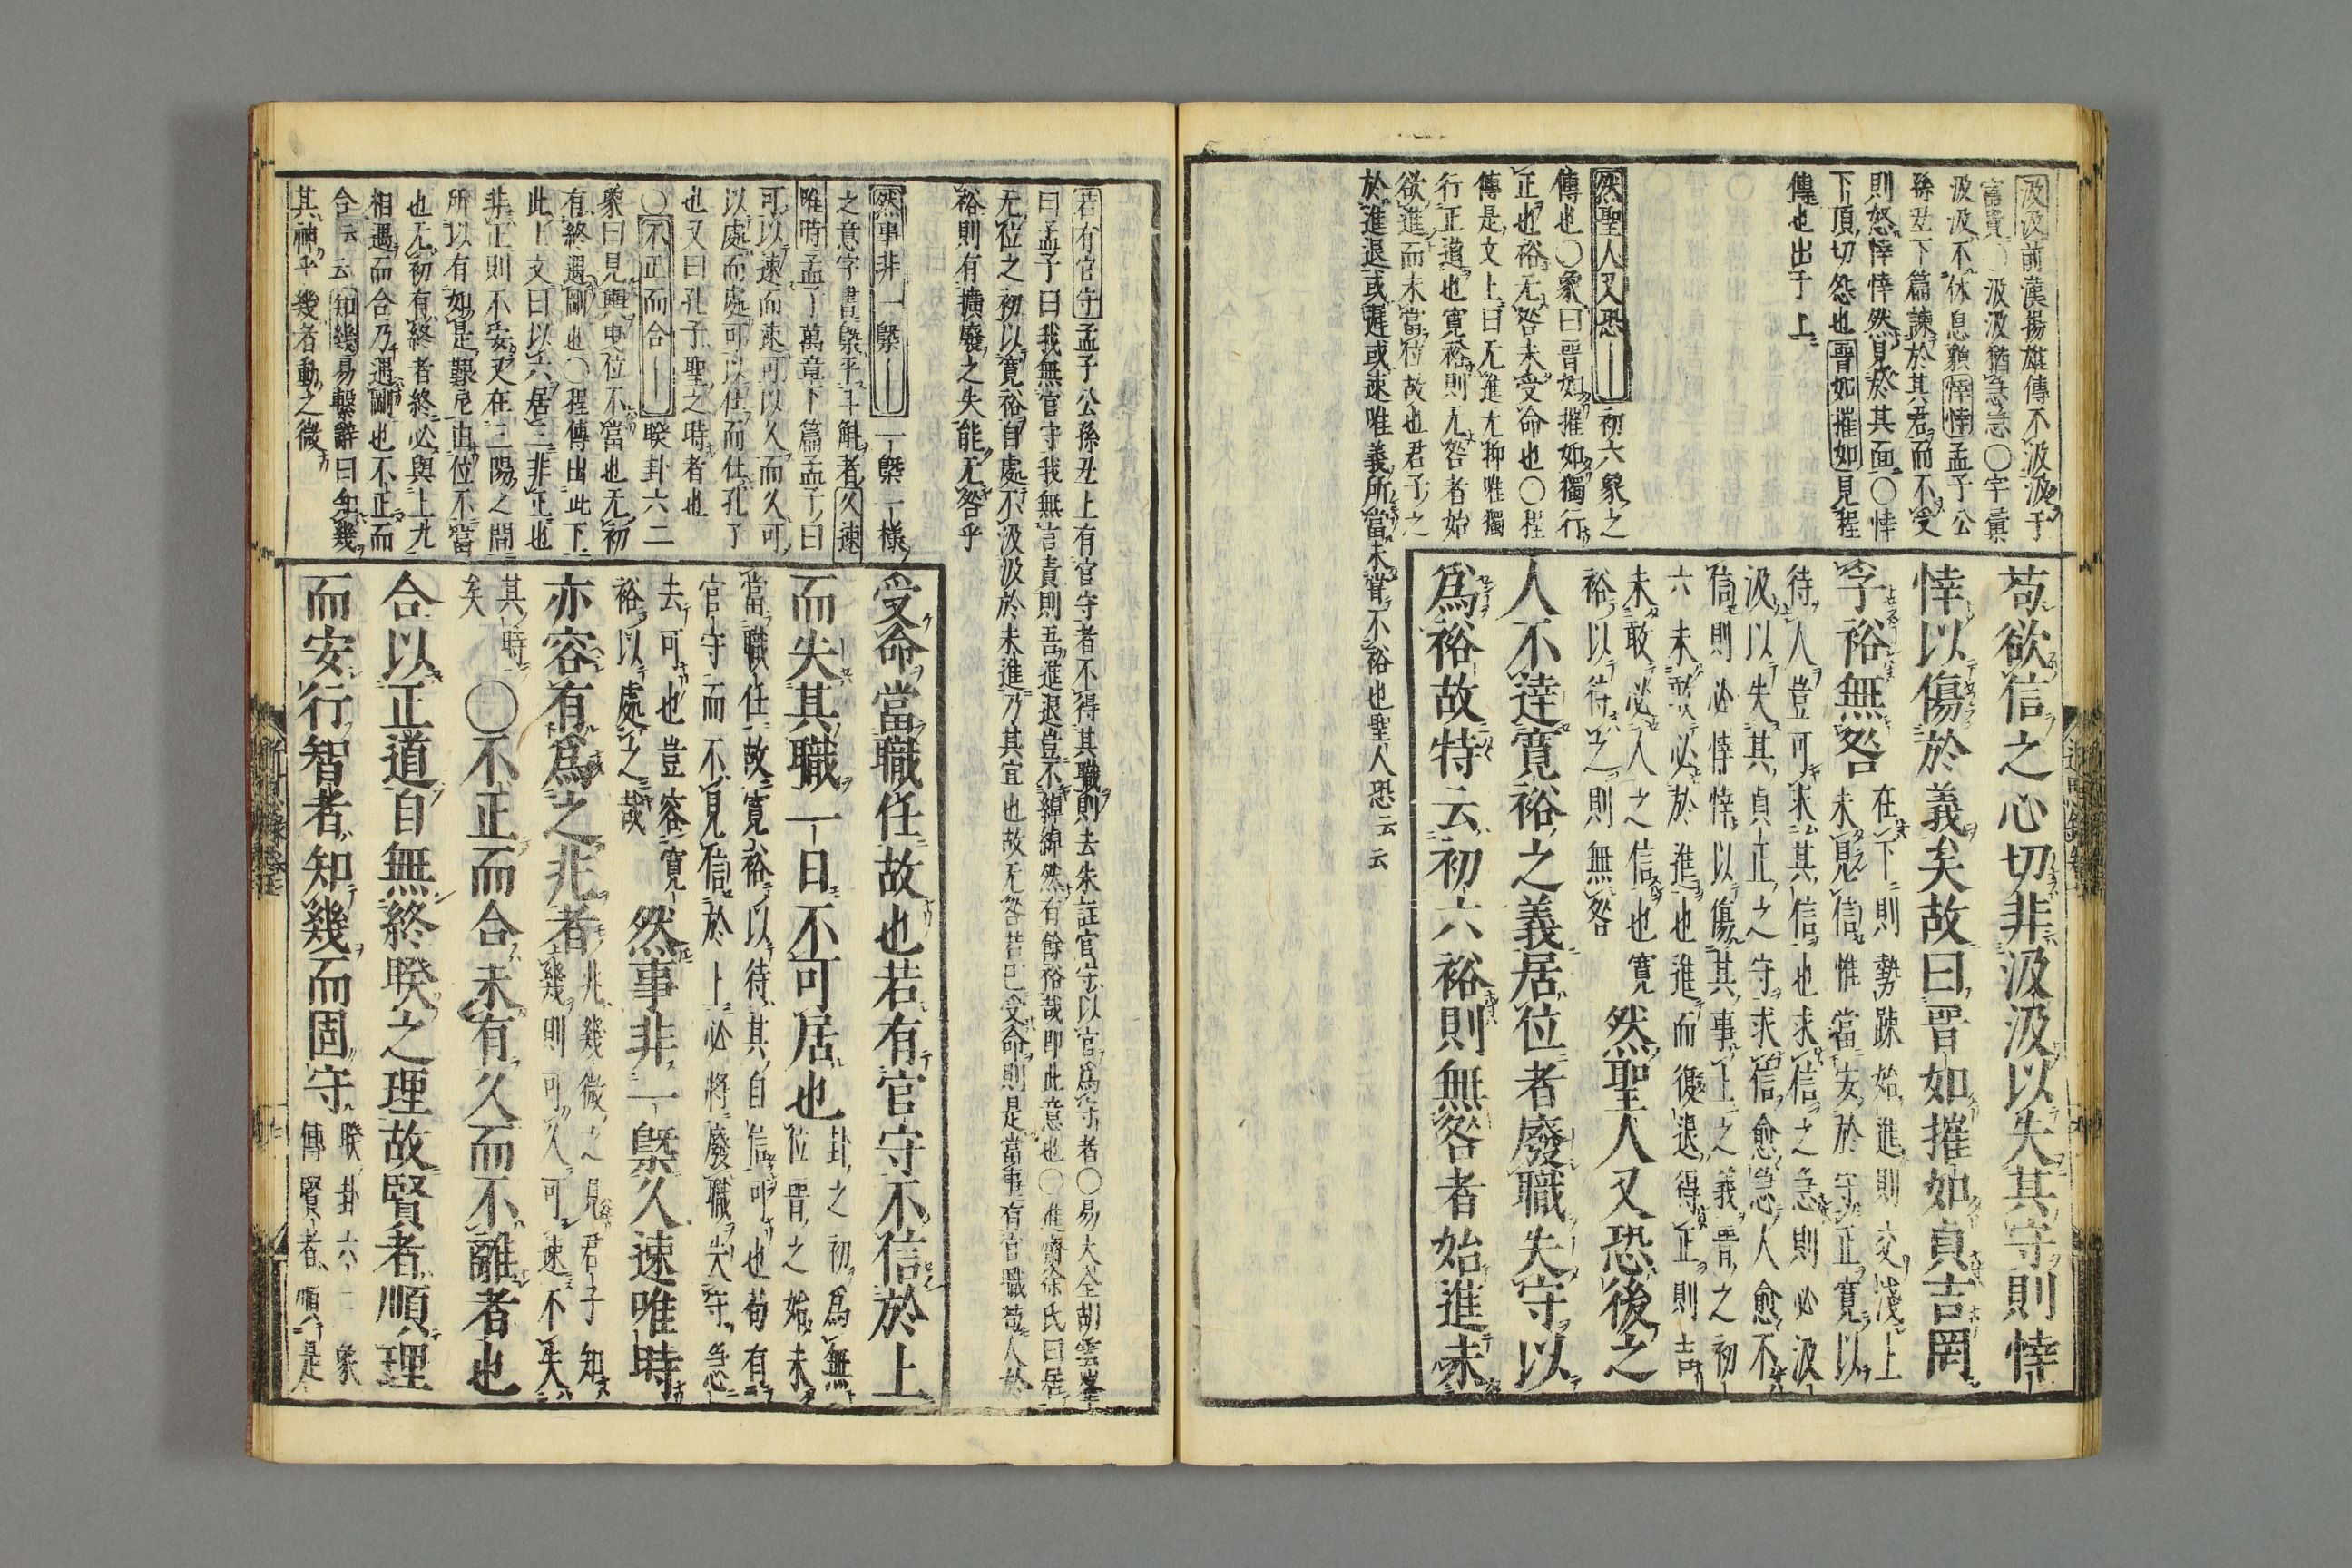 汲汲前漢揚雄傳不汲汲于
富貴○汲汲猶急急○字彙
汲汲不休息貌悻悻孟子公
孫丑下篇諫於其君而不受
則怒悻悻然見於其面○悻
下頂切怨也晋如摧如見程
傳也出于上
然聖人又恐——初六象之
傳也○象曰晋如摧如獨行
正也裕无咎未受命也○程
傳是文上曰无進尢抑唯獨
行正道也寛裕則无咎者始
欲進而未當位故也君子之
於進退或遲或速唯義所當未嘗不裕也聖人恐云云
苟欲信之心切非汲汲以失其守則悻
悻以傷於義矣故曰晋如摧如貞吉罔
孚裕無咎在下則勢踈始進則交淺上
未見信惟當安於守正寛以
待人豈可求其信也求信之急則必汲
汲以失其貞正之守求信愈急人愈不
信則必悻悻以傷其事上之義晋之初
六未敢必於進也進而復退得正則吉
未敢必人之信也寛
裕以待之則無咎
然聖人又恐後之
人不達寛裕之義居位者廢職失守以
爲裕故特云初六裕則無咎者始進未
若有官守孟子公孫丑上有官守者不得其職則去朱註官守以官爲守者○易大全胡雲峯
曰孟子曰我無官守我無言責則吾進退豈不綽綽然有餘裕哉即此意也○進齋徐氏曰居
无位之初以寛裕自處不汲汲於未進乃其宜也故无咎若已受命則是當事有官職苟人於
裕則有擴廢之失能无咎乎
然事非一槩——一槩一様
之意字書槩平斗斛者久速
唯時孟子萬章下篇孟子曰
可以速而速可以久而久可
以處而處可以仕而仕孔子
也又曰孔子聖之時者也
○不正而合——睽卦六二
象曰見輿曳位不當也无初
有終遇剛也○程傳出此下
此上文曰以六居三非正也
非正則不安又在二陽之間
所以有如是艱戹由位不當
也无初有終者終必與上九
相遇而合乃遇剛也不正而
合云云知幾易繫辭曰知幾
其神乎幾者動之微
受命當職任故也若有官守不信於上
而失其職一日不可居也卦之初爲無
位晋之始未
當職任故寛裕以待其自信可也苟有
官守而不見信於上必將廢職失守急
去可也豈容寛
裕以處之哉
然事非一槩久速唯時
亦容有爲之兆者兆幾微之見君子知
幾則可久可速不失
其時
矣
○不正而合未有久而不離者也
合以正道自無終睽之理故賢者順理
而安行智者知幾而固守睽卦六三象
傳賢者順是